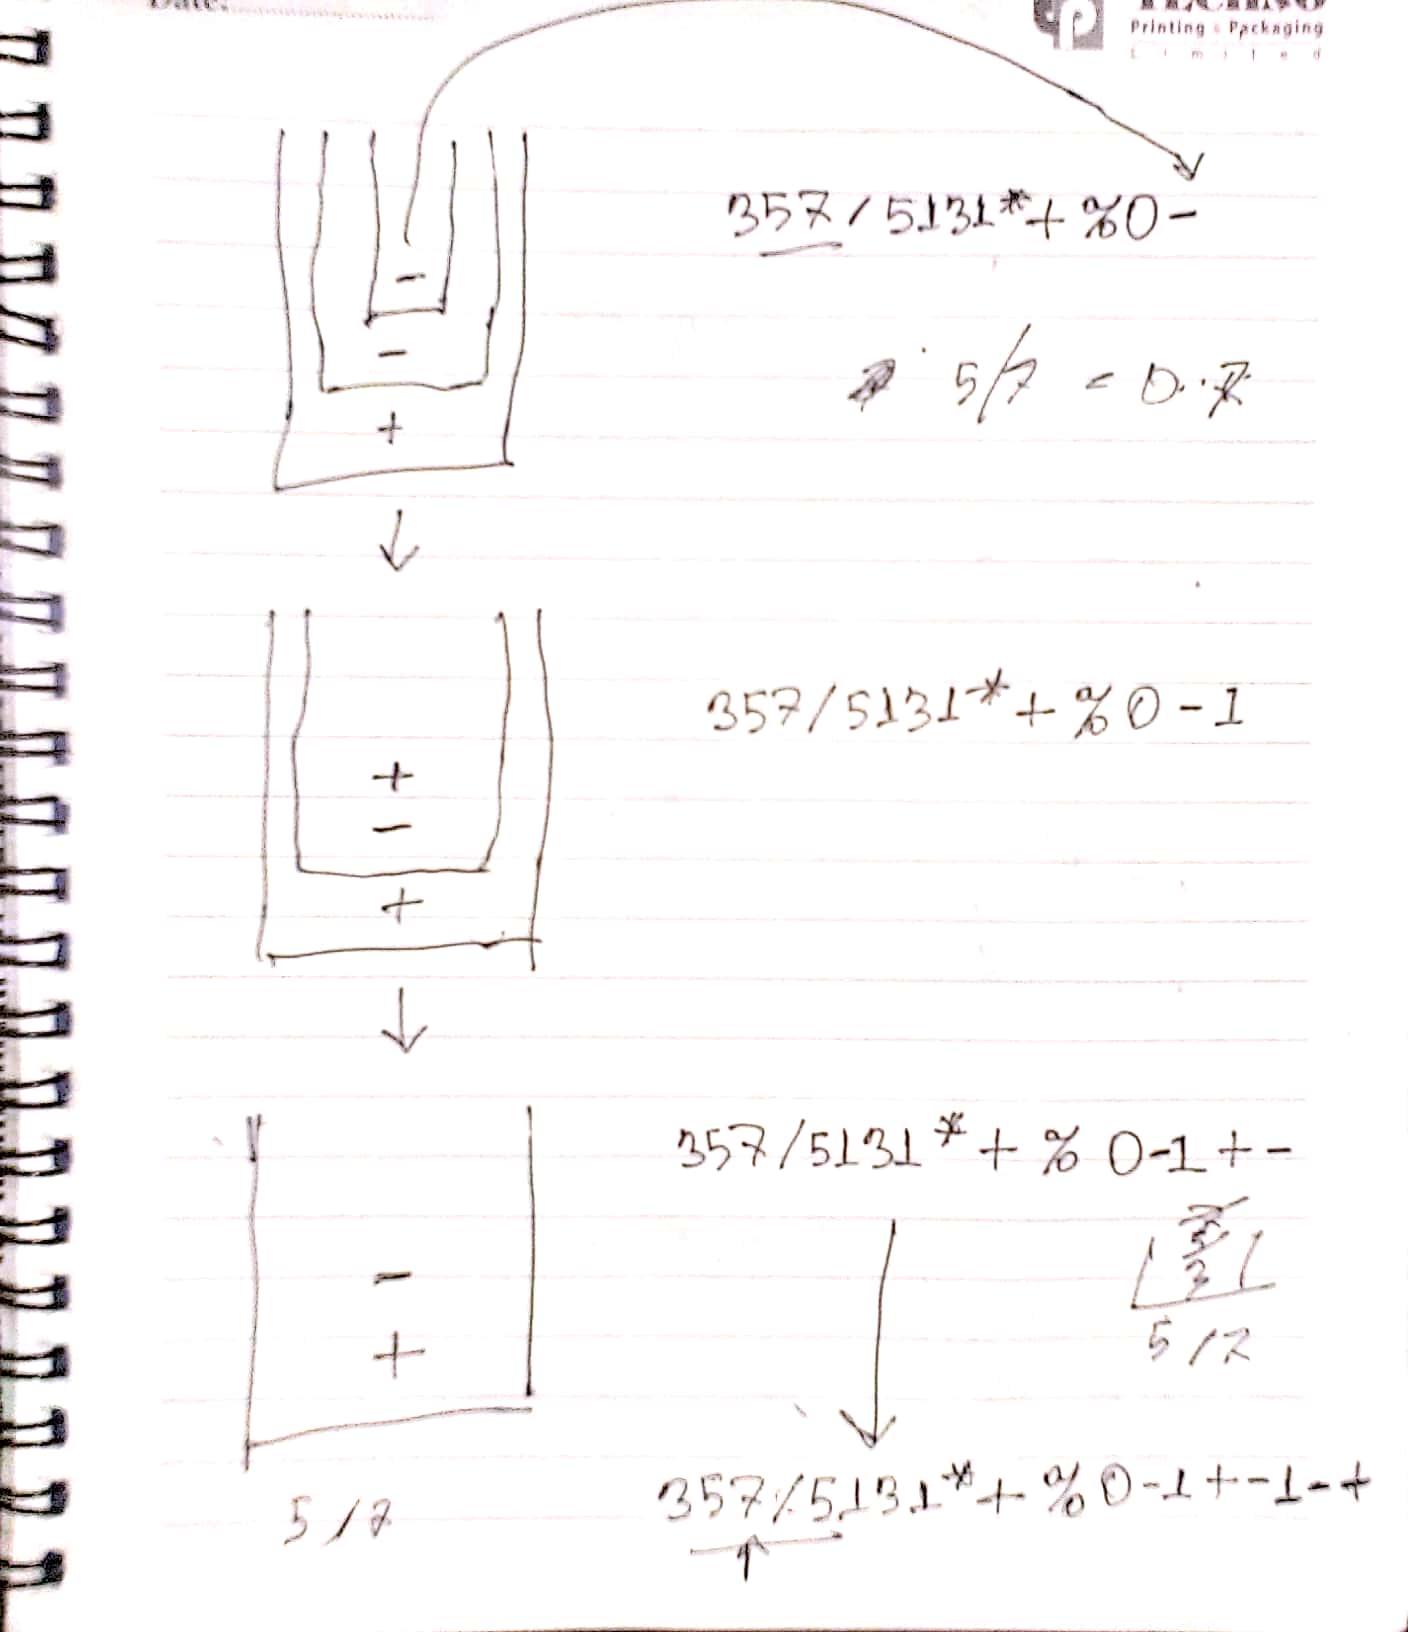 Printing & Packaging
Limited
357/5131*+%0-
-
-
+
5/7 = 0.7
357/5131*+%0-1
+
-
+
357/5131*+%0-1+-
-
+
5/7
5/7
357/5131*+%0-1+-1-+